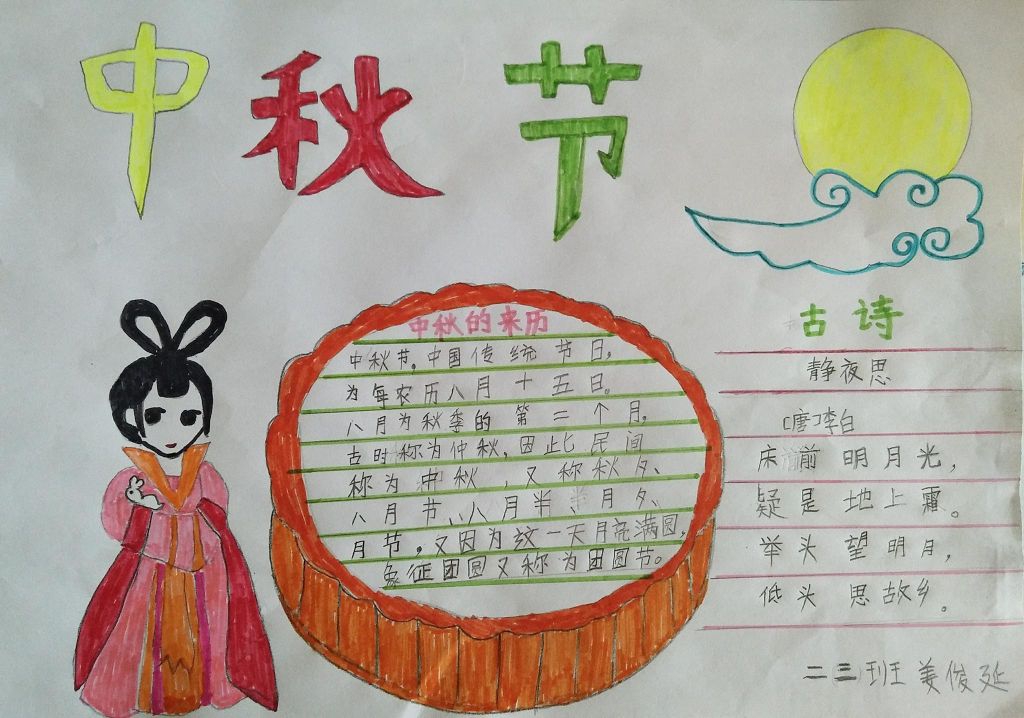 中秋节
中秋的来历
中秋节,中国传统节日,
为每农历八月十五日。
八月为秋季的第二个月,
古时称为仲秋,因此民间
称为中秋,又称秋夕、
八月节、八月半、月夕、
月节,又因为这一天月亮满圆,
象征团圆又称为团圆节。
古诗
静夜思
[唐]李白
床前明月光,
疑是地上霜。
举头望明月,
低头思故乡。
二三班姜俊延